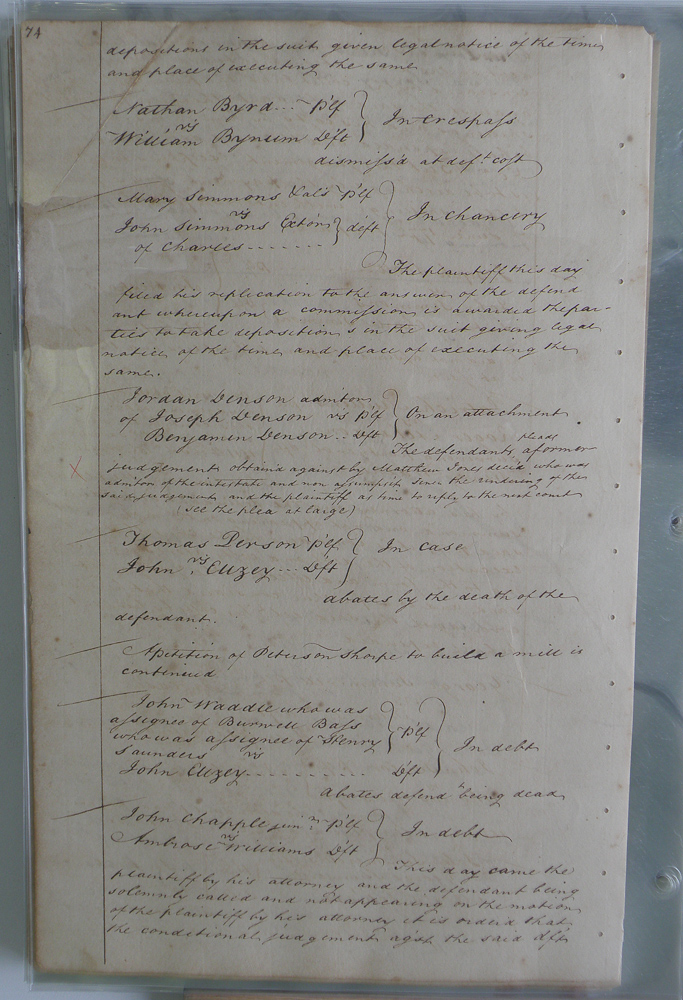 74
depositions in the suit given legal notice of the time
and place of executing the same
Nathan Byrd... Plf
vs
In trespass
William Bynum Dft
dismiss'd at deft cost
Mary Simmons &als plf
vs
In Chancery
John Simmons Extors dift
of Charles........
The plaintiff this day
filed his replication to the answer of the defend
ant whereupon a commission is awarded the par-
ties to take depositions in the suit giving legal
notice of the time and place of executing the
same.
Jordan Denson admitors
of Joseph Denson vs plf
On an attachment
Benjamin Denson .. Dft
The defendant pleads a former
judgement obtain'd against by Matthew Jones decid who was
admitor of the intestate and non assumpsit since the rendering of the
said judgement and the plaintiff as time to reply to the next court
(see the plea at large)
Thomas Person plf
vs
In case
John Cuzey... Dft
abates by the death of the
defendant.
A petition of Peterson Thorpe to build a mill is
continued
John Waddie who was
assignee of Burwell Bass
plf
who was assignee of Henry
Saunders vs
In debt
John Cuzey.......... Dft
abates defend being dead
John Chapple jun'r plf
vs
In debt
Ambrose Williams Dft
This day came the
plaintiff by his attorney and the defendant being
solemnly called and not appearing on the motion
of the plaintiff by his attorney it is orderd that
the conditional judgement agst the said dft